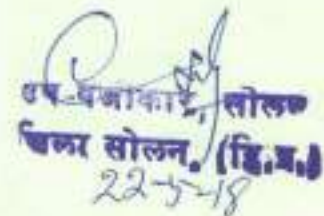 उप पंजीकार, सोलन
जिला सोलन. (हि.प्र.)
22-5-18